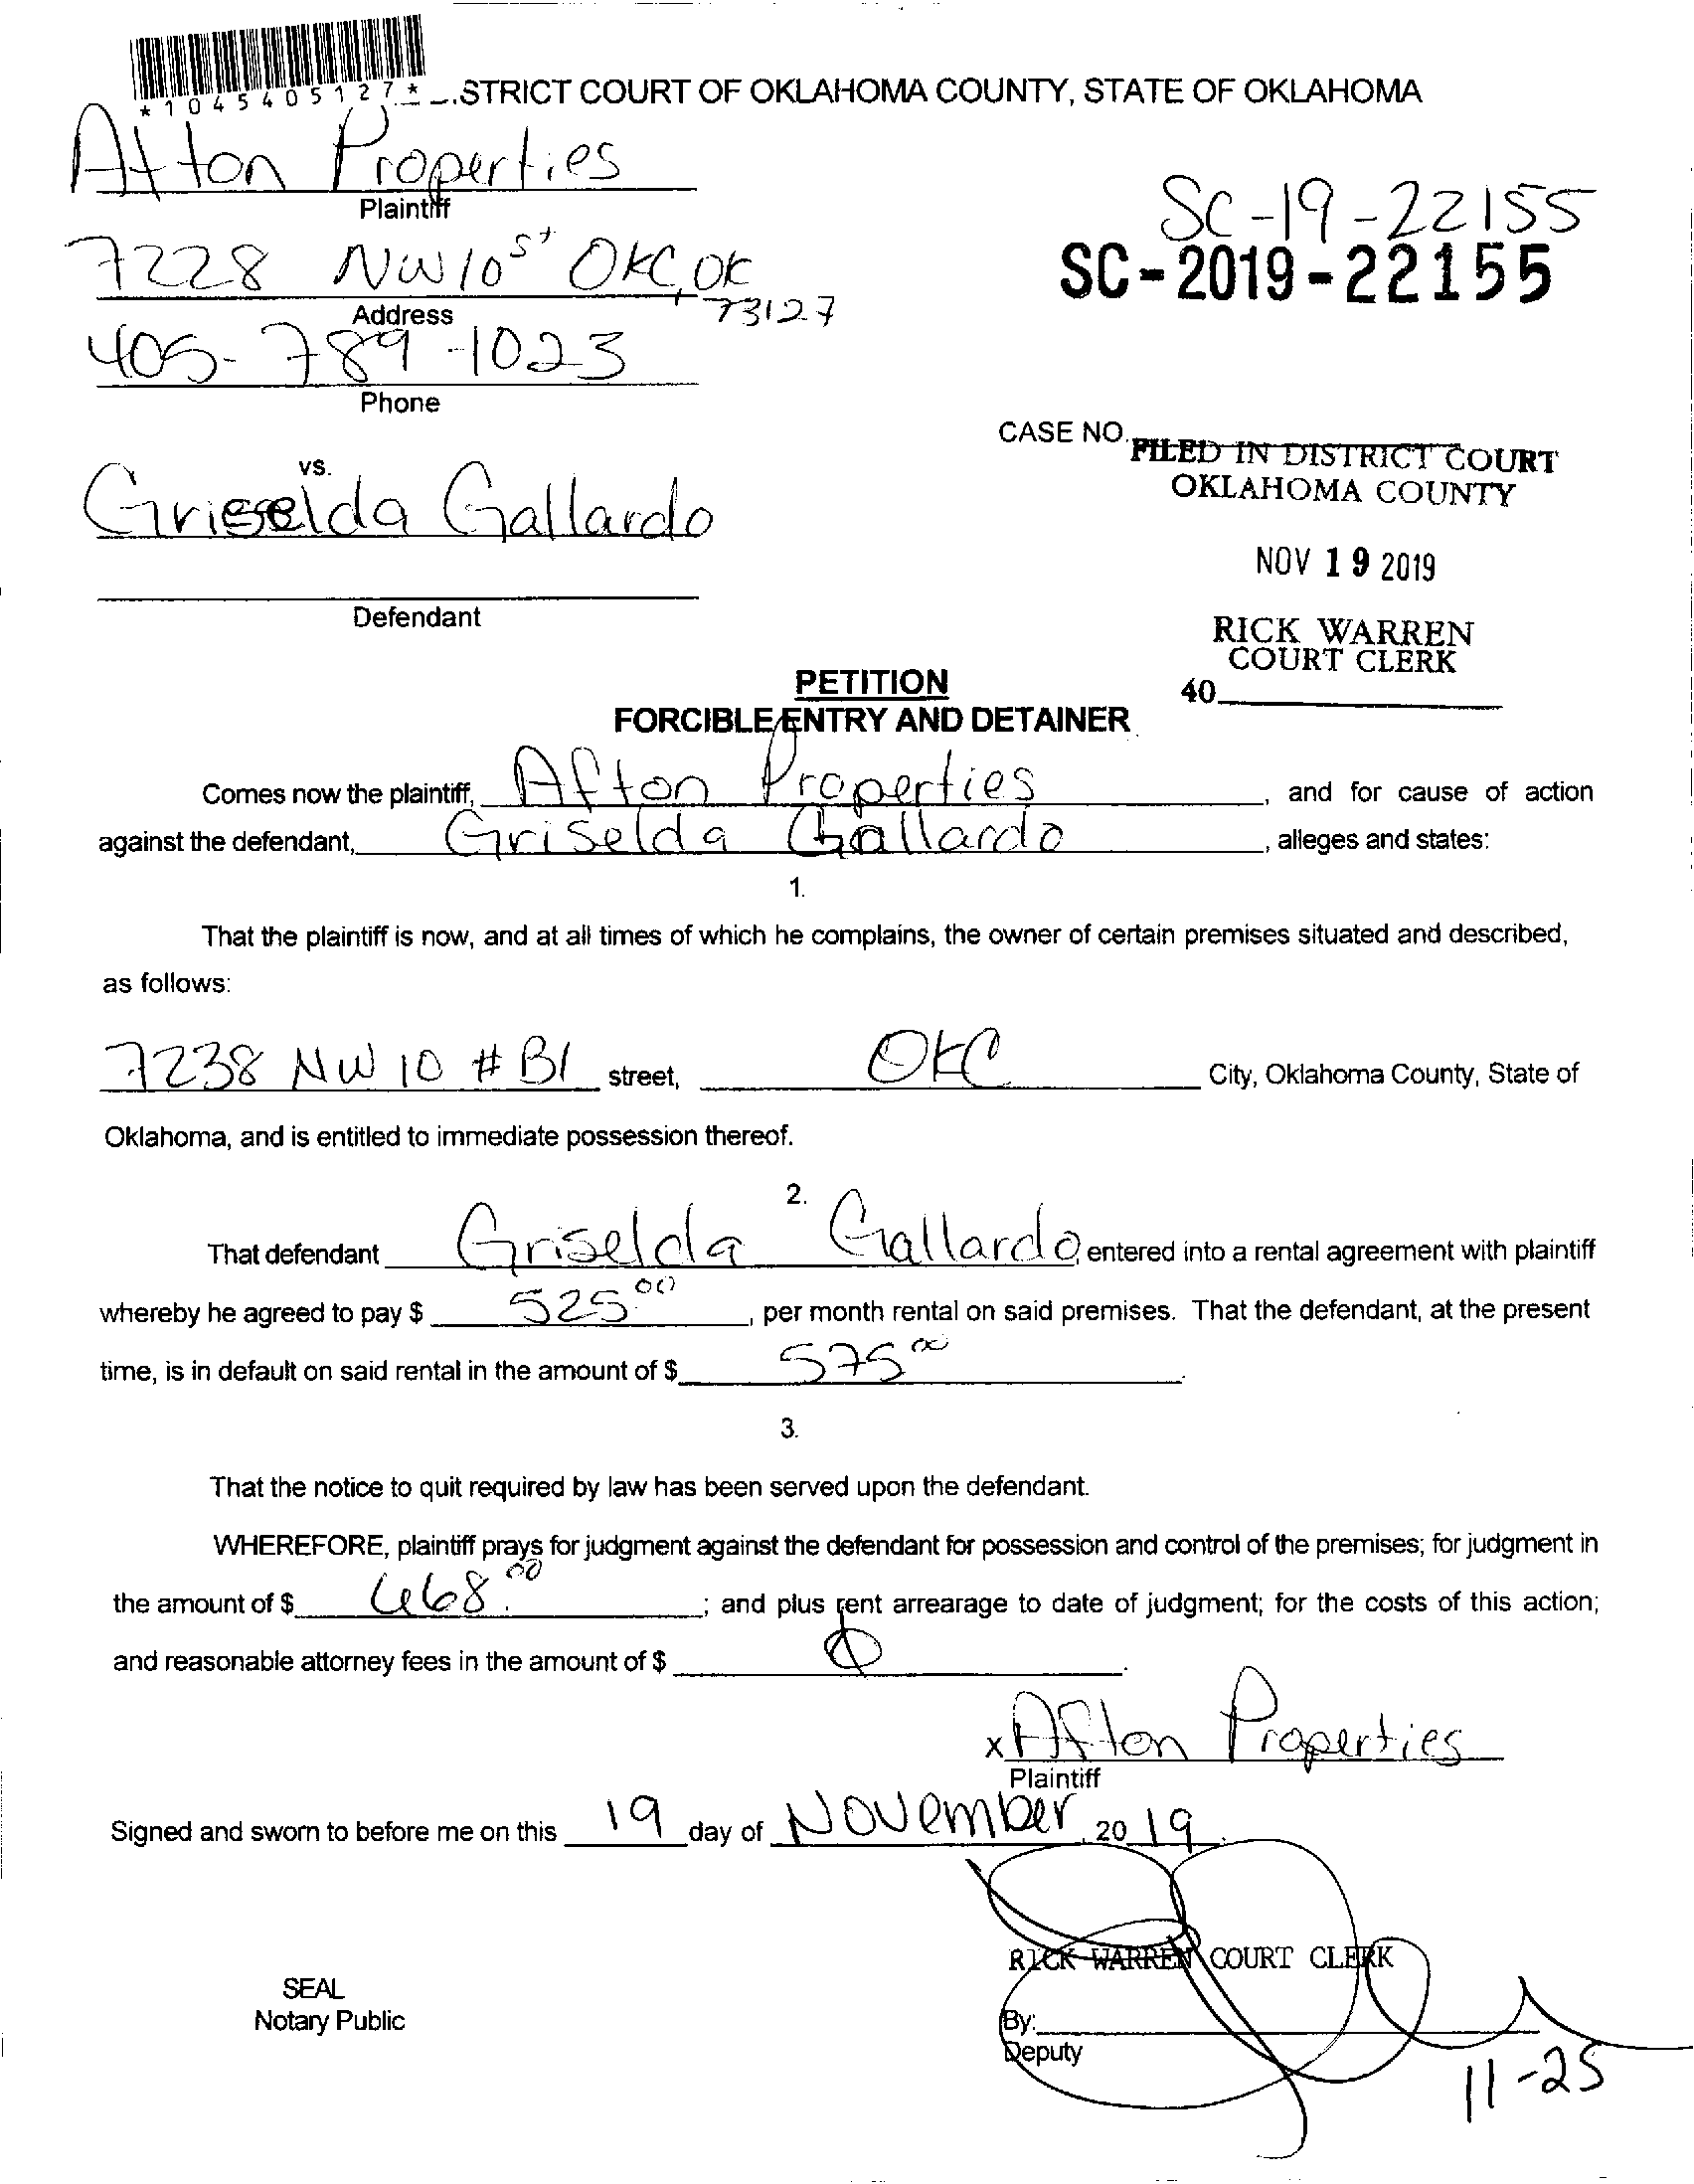 *1045405127*
STRICT COURT OF OKLAHOMA COUNTY, STATE OF OKLAHOMA
Afton Properties
Plaintiff
SC-19-22155
SC-2019-22155
7228 NW 10 st OKC, OK
73127
Address
405-789-1023
Phone
CASE NO.
FILED IN DISTRICT COURT
OKLAHOMA COUNTY
vs.
Griselda Gallardo
NOV 19 2019
Defendant
RICK WARREN
COURT CLERK
40
PETITION
FORCIBLE ENTRY AND DETAINER
Comes now the plaintiff, Afton Properties, and for cause of action
against the defendant, Griselda Gallardo, alleges and states:
1.
That the plaintiff is now, and at all times of which he complains, the owner of certain premises situated and described,
as follows:
7238 NW 10 # B1 street, OKC City, Oklahoma County, State of
Oklahoma, and is entitled to immediate possession thereof.
2.
That defendant Griselda Gallardo, entered into a rental agreement with plaintiff
whereby he agreed to pay $ 525 00, per month rental on said premises. That the defendant, at the present
time, is in default on said rental in the amount of $ 575 00.
3.
That the notice to quit required by law has been served upon the defendant.
WHEREFORE, plaintiff prays for judgment against the defendant for possession and control of the premises; for judgment in
the amount of $ 668.00; and plus rent arrearage to date of judgment; for the costs of this action;
and reasonable attorney fees in the amount of $ Ø.
x Afton Properties
Plaintiff
Signed and sworn to before me on this 19 day of November, 20 19.
RICK WARREN COURT CLERK
SEAL
Notary Public
By:
Deputy
11-25